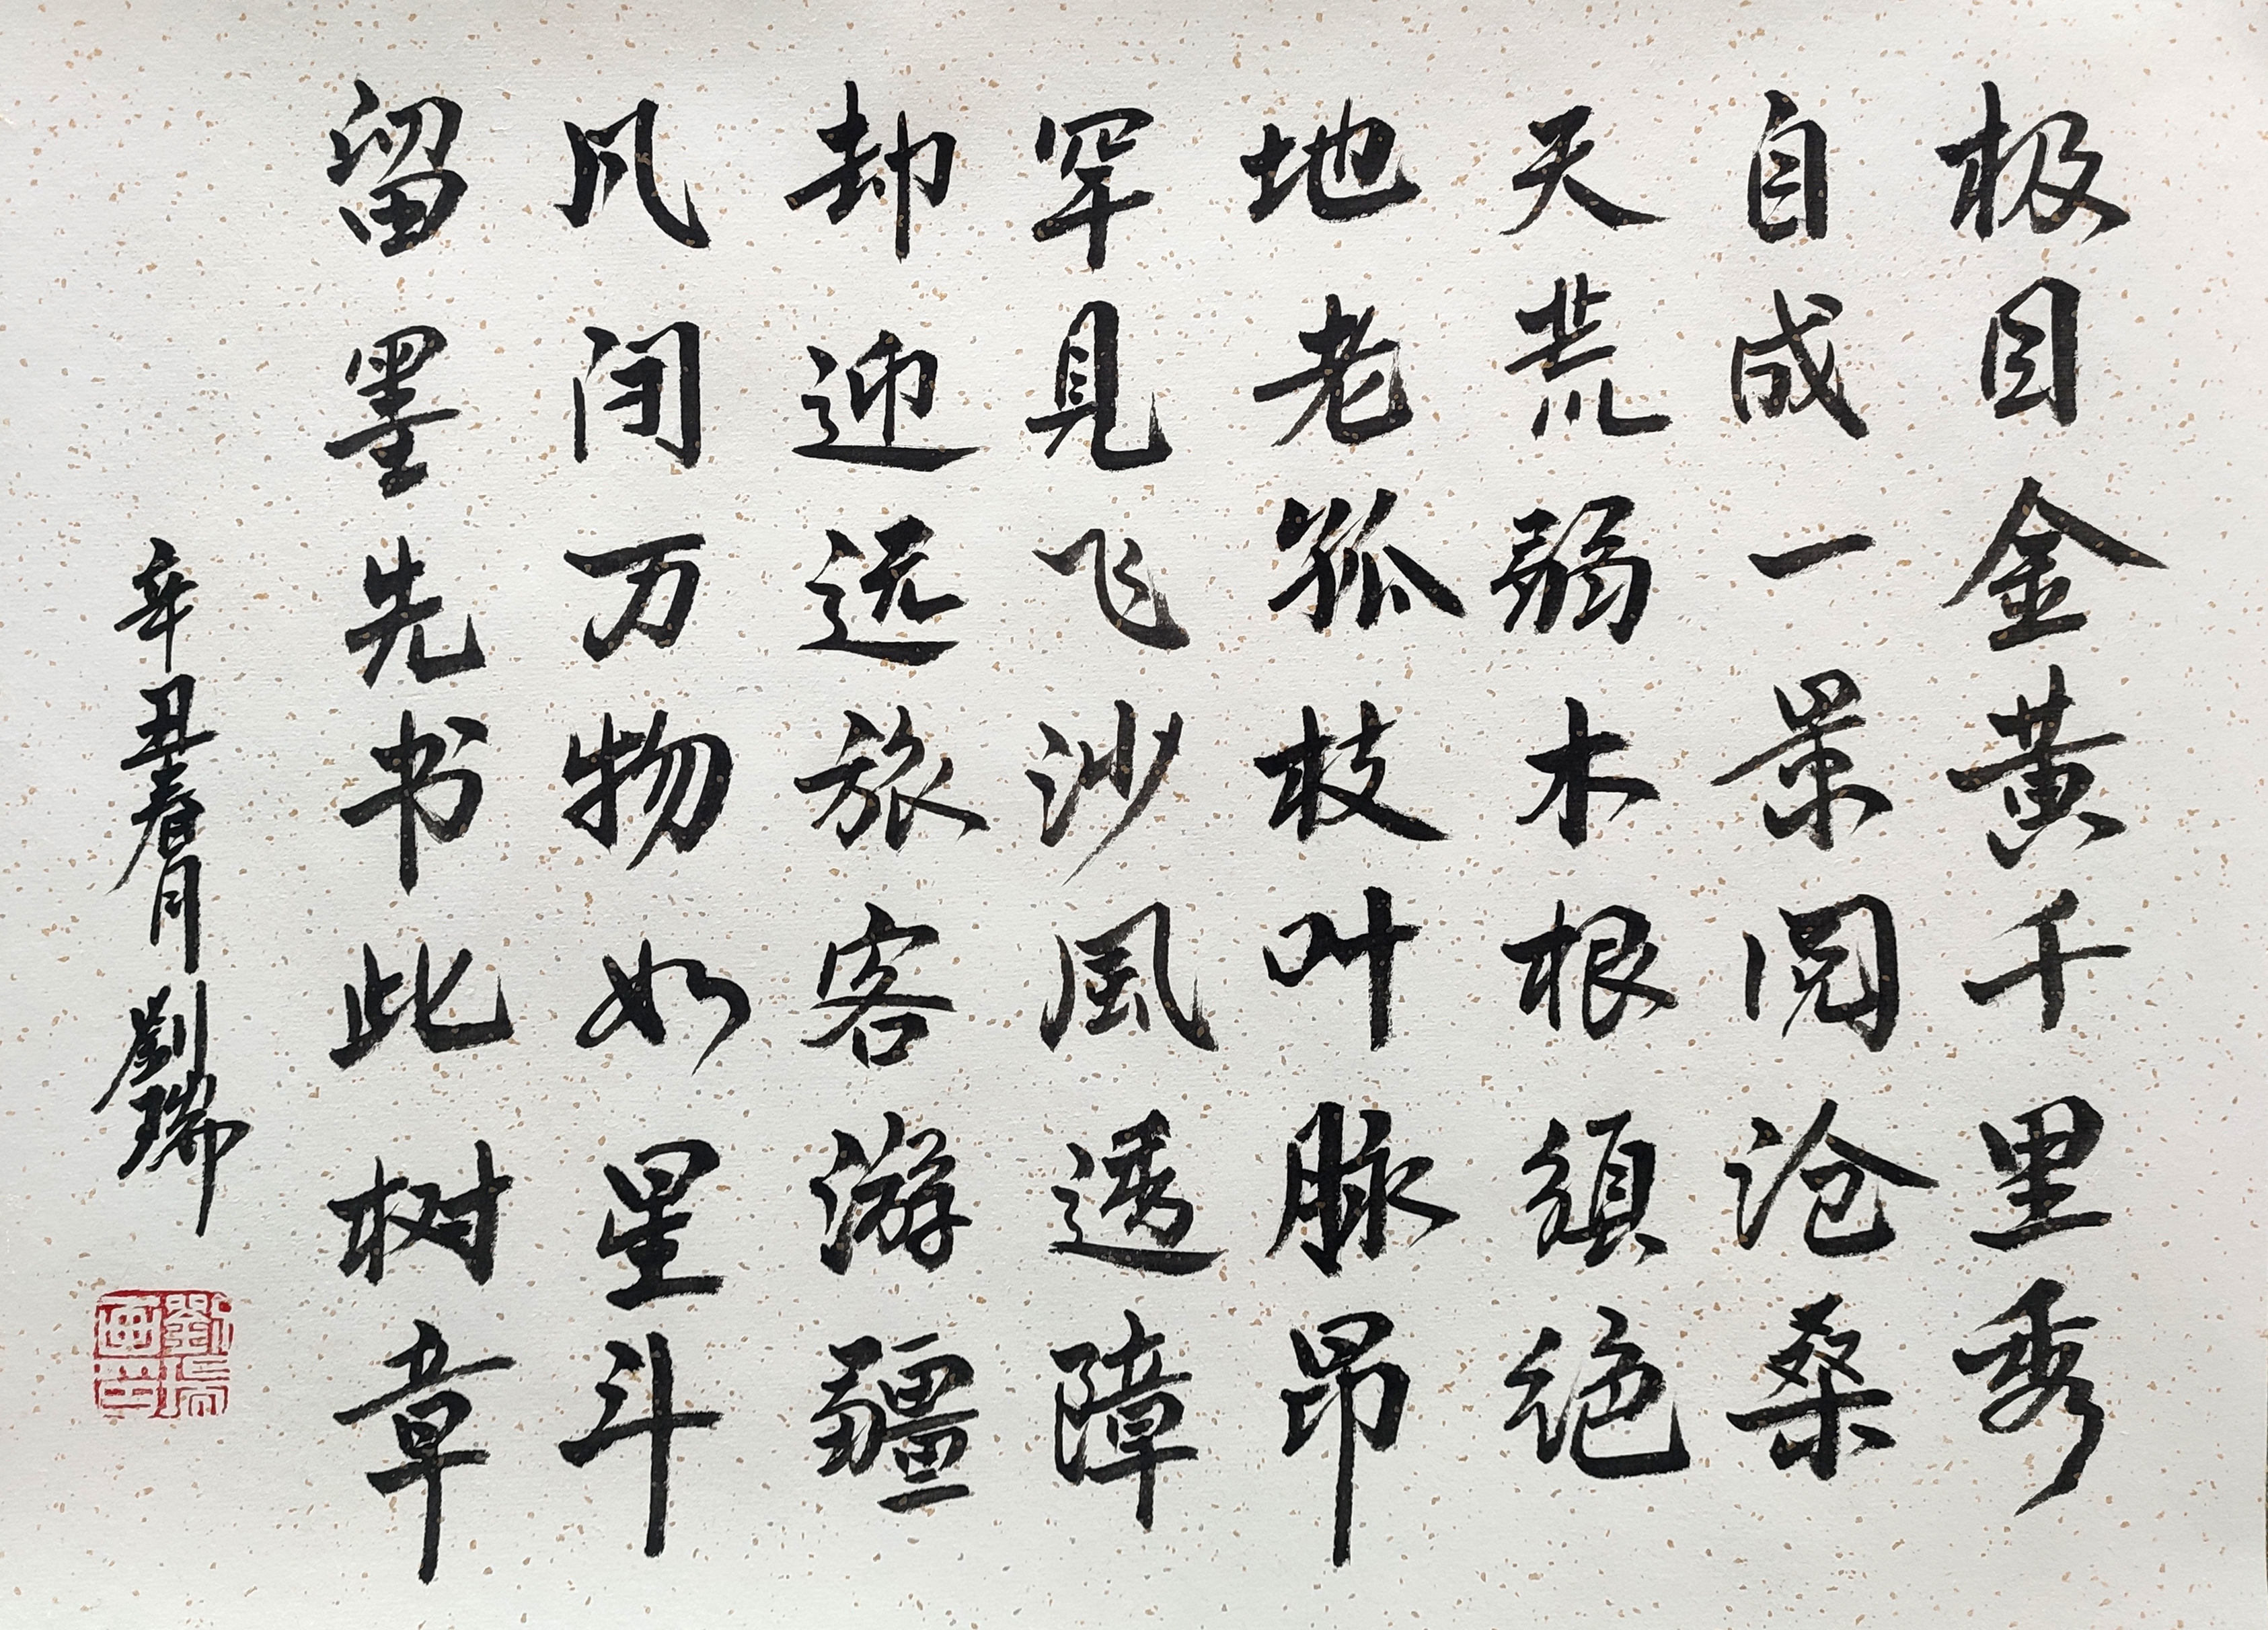 极目金黄千里秀
自成一景阅沧桑
天荒弱木根須绝
地老孤枝叶脉昂
罕见飞沙風透障
却迎远旅客游疆
凡间万物如星斗
留墨先书此树章
辛丑春月劉瑞